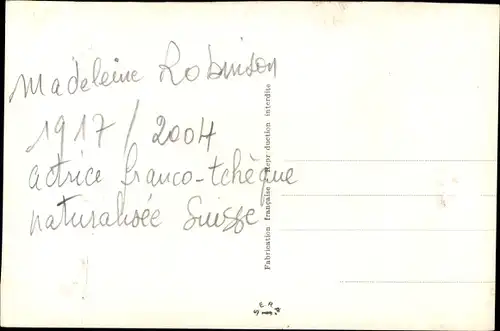 Madeleine Robinson
1917 / 2004
actrice franco-tchèque
naturalisée Suisse
Fabrication française Reproduction interdite